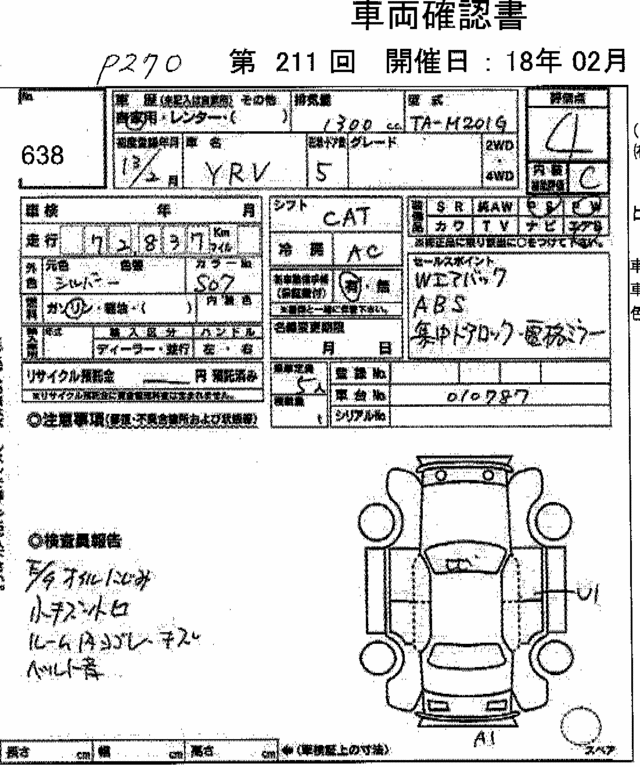 車両確認書
P270 第 211 回 開催日：18年 02月
No. 638
車歴(未記入は自家用) その他 排気量 型式 評価点
自家用・レンター・( ) 1300 cc TA-M201G 4
初度登録年月 車名 ドア数 グレード 2WD・4WD
13/2月 YRV 5 内装 C
車検 年 月 シフト CAT
P S 純AW P S P W
カワ T V ナビ エアB
走行 72837 Km マイル 冷房 AC
※純正品に限り
外色 元色 色替 カラーNo.
シルバー S07
有・無 セールスポイント
Wエアバック
ABS
集中ドアロック・電格ミラー
燃料 ガソリン・軽油・( ) 内装色
年式 輸入区分 ハンドル 名義変更期限
ディーラー・並行 左・右 月 日
リサイクル預託金 円 預託済み 乗車定員 5人 登録No.
※リサイクル預託金に資金管理料金は含まれません。 積載量 t 車台No. 010787
シリアルNo.
◎注意事項(修復・不具合箇所および状態等)
◎検査員報告
E/Gオイルにじみ
小キズ
ルーム内ヨゴレ・キズ
ベルト音
U1
A1
スペア
長さ cm 幅 cm 高さ cm ←(車検証上の寸法)